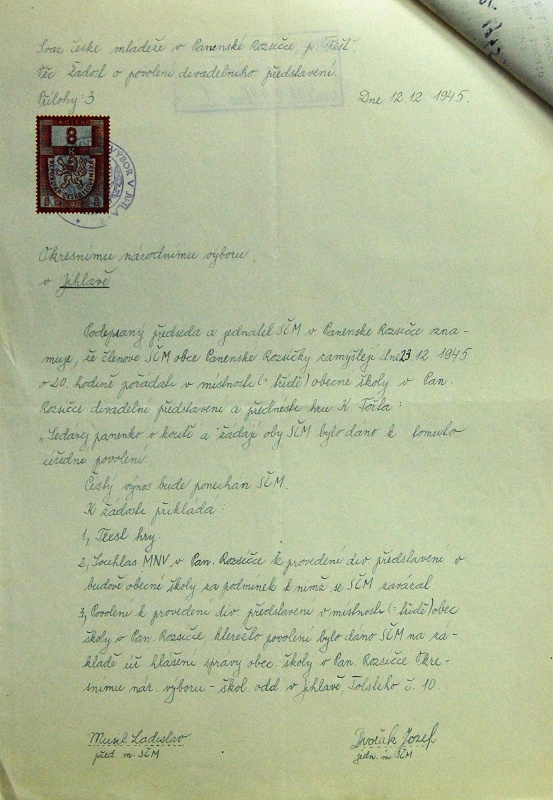 Svaz české mládeže v Panenské Rozsíčce, p. Třešť.
Věc Žádost o povolení divadelního představení.
Přílohy: 3
Dne 12. 12. 1945.
8
VÝBOR V JIHLA
Okresnímu národnímu výboru
v Jihlavě
Podepsaný předseda a jednatel SČM v Panenské Rozsíčce ozna-
muje, že členové SČM obce Panenské Rozsíčky zamýšlejí dne 23. 12. 1945
o 20. hodině pořádati v místnosti (= třídě) obecné školy v Pan.
Rozsíčce divadelní představení a přednésti hru K. Fořta:
„Sedávej panenko v koutě a žádají aby SČM bylo dáno k tomuto
úřední povolení.
Čistý výnos bude ponechán SČM.
K žádosti přikládá:
1, Text hry.
2, Souhlas MNV v Pan. Rozsíčce k provedení div představení v
budově obecní školy za podmínek k nimž se SČM zavázal
3, Povolení k provedení div představení v místnosti (= třídě) obec
školy v Pan. Rozsíčce, kteréžto povolení bylo dáno SČM na zá-
kladě úř hlášení správy obec. školy v Pan. Rozsíčce Okre-
snímu nár. výboru - škol. odd. v Jihlavě Tolstého č. 10.
Musil Ladislav
před. m. SČM
Dvořák Josef
jedn. m. SČM